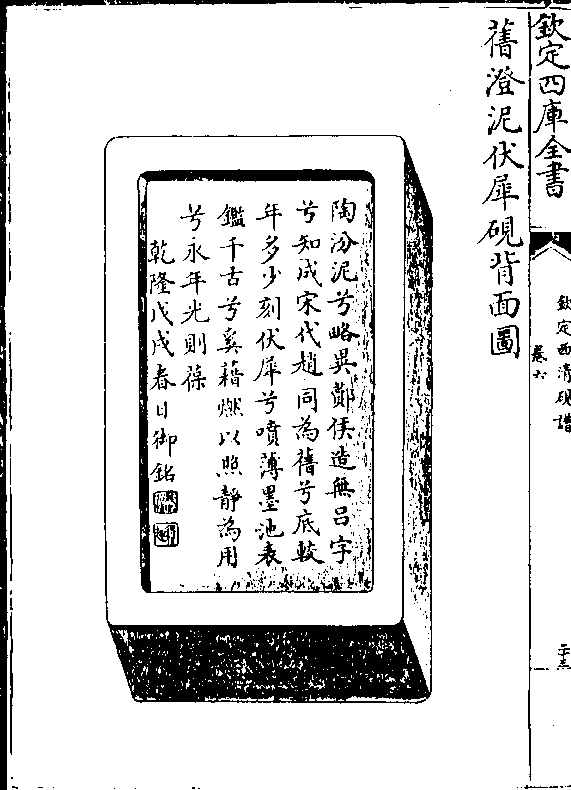 欽定四庫全書
欽定西清硯譜
卷六
二十三
舊澄泥伏犀硯背面圖
陶汾泥兮略異鄭侯造無呂字
兮知成宋代趙同為舊兮底較
年多少刻伏犀兮噴薄墨池表
鑑千古兮奚藉燃以照靜為用
兮永年光則葆
乾隆戊戌春日御銘